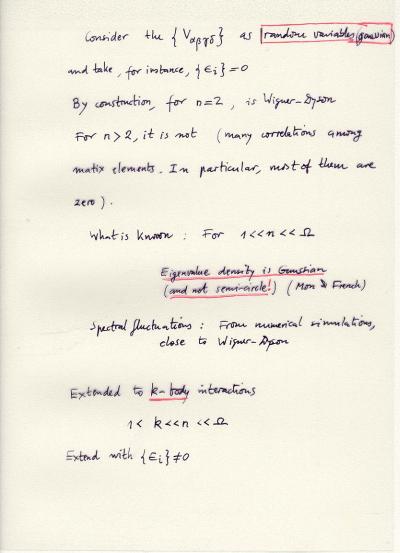 Consider the {Vαβγδ} as random variables (gaussian)
and take, for instance, {ϵi} = 0
By construction, for n=2, is Wigner-Dyson
For n>2, it is not (many correlations among
matix elements. In particular, most of them are
zero).
What is known: For 1<<n<<Ω
Eigenvalue density is Gaussian
(and not semi-circle!) (Mon & French)
Spectral fluctuations: From numerical simulations,
close to Wigner-Dyson
Extended to k-body interactions
1< k<<n <<Ω
Extend with {ϵi}≠0